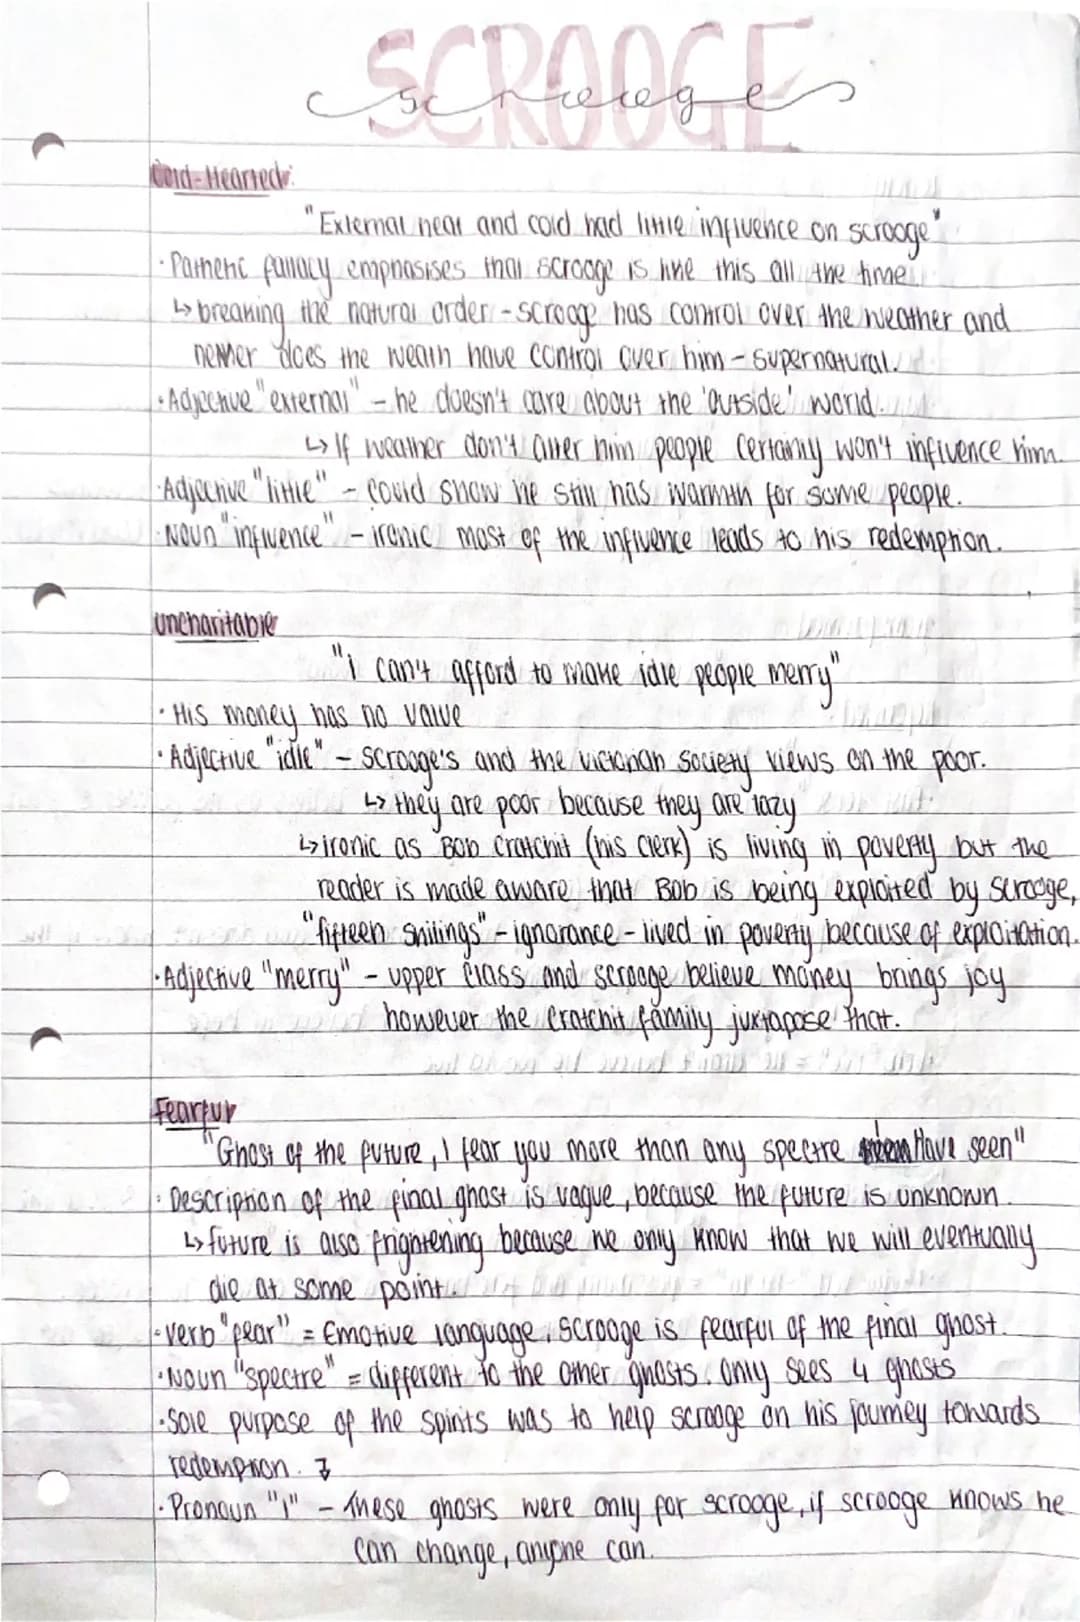 SCROOGE
scrooge
Cold-Hearted:
"External heat and cold had little influence on scrooge"
· Pathetic fallacy emphasises that scrooge is like this all the time.
↳ breaking the natural order - scrooge has control over the weather and
neither does the weath have control over him - supernatural.
· Adjective "external" - he doesn't care about the 'outside' world.
↳ If weather don't alter him people certainly won't influence him.
· Adjective "little" - could show he still has warmth for some people.
· Noun "influence" - ironic most of the influence leads to his redemption.
uncharitable
"i can't afford to make idle people merry"
· His money has no value
· Adjective "idle" - scrooge's and the victorian society views on the poor.
↳ they are poor because they are lazy
↳ ironic as Bob Cratchit (his clerk) is living in poverty but the
reader is made aware that Bob is being exploited by scrooge,
"fifteen shillings" - ignorance - lived in poverty because of exploitation.
· Adjective "merry" - upper class and scrooge believe money brings joy
however the Cratchit family juxtapose that.
Fearful
"Ghost of the future, I fear you more than any spectre Have seen"
· Description of the final ghost is vague, because the future is unknown.
↳ future is also frightening because we only know that we will eventually
die at some point.
· verb "fear" = Emotive language, scrooge is fearful of the final ghost.
· Noun "spectre" = different to the other ghosts. Only sees 4 ghosts
· Sole purpose of the spirits was to help scrooge on his journey towards
redemption.
· Pronoun "I" - these ghosts were only for scrooge, if scrooge knows he
can change, anyone can.